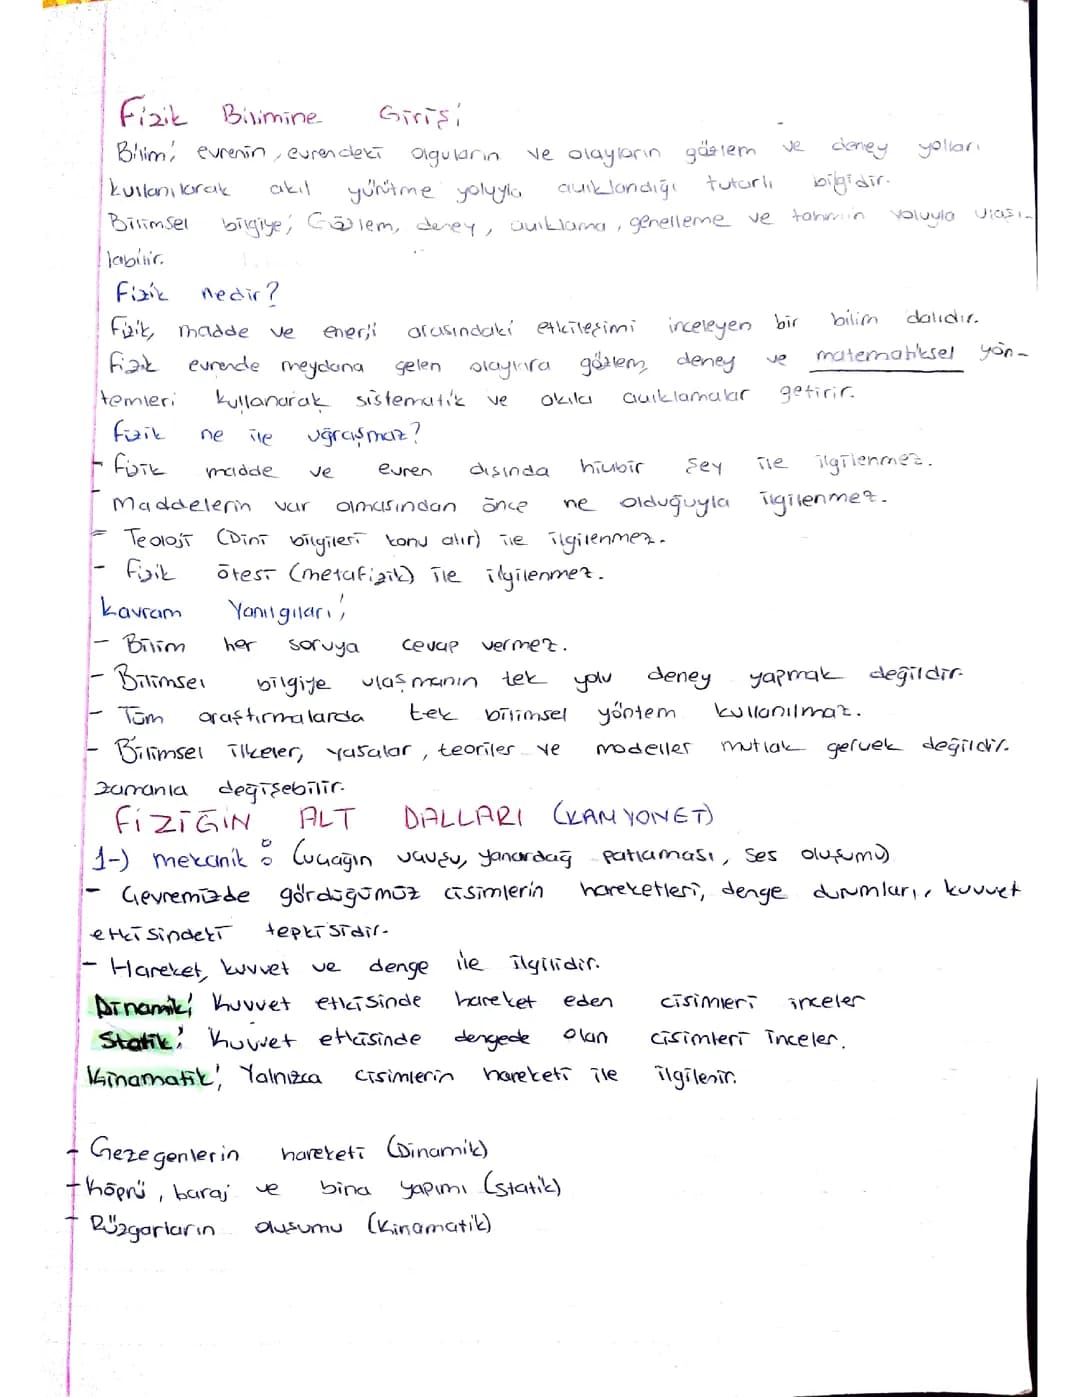 Fizik Bilimine Girişi
Bilim; evrenin, evrendeki olguların ve olayların gözlem ve deney yolları
kullanılarak akıl yürütme yoluyla açıklandığı tutarlı bilgidir.
Bilimsel bilgiye; Gözlem, deney, açıklama, genelleme ve tahmin yoluyla ulaşı-
labilir.
Fizik nedir?
Fizik, madde ve enerji arasındaki etkileşimi inceleyen bir bilim dalıdır.
Fizik evrende meydana gelen olaylara gözlem, deney ve matematiksel yön-
temleri kullanarak sistematik ve akılcı açıklamalar getirir.
Fizik ne ile uğraşmaz?
- Fizik madde ve evren dışında hiçbir şey ile ilgilenmez.
- Maddelerin var olmasından önce ne olduğuyla ilgilenmez.
- Teoloji (Dini bilgileri konu alır) ile ilgilenmez.
- Fizik ötesi (metafizik) ile ilgilenmez.
Kavram Yanılgıları;
- Bilim her soruya cevap vermez.
- Bilimsel bilgiye ulaşmanın tek yolu deney yapmak değildir.
- Tüm araştırmalarda tek bilimsel yöntem kullanılmaz.
- Bilimsel ilkeler, yasalar, teoriler ve modeller mutlak gerçek değildir.
zamanla değişebilir.
FİZİĞİN ALT DALLARI (KAMYONET)
1-) mekanik : (uçağın uçuşu, yanardağ patlaması, ses oluşumu)
- Çevremizde gördüğümüz cisimlerin hareketleri, denge durumları, kuvvet
etkisindeki tepkisidir.
- Hareket, kuvvet ve denge ile ilgilidir.
Dinamik; Kuvvet etkisinde hareket eden cisimleri inceler
Statik; Kuvvet etkisinde dengede olan cisimleri inceler.
Kinamatik; Yalnızca cisimlerin hareketi ile ilgilenir.
- Gezegenlerin hareketi (Dinamik)
- Köprü, baraj ve bina yapımı (statik)
- Rüzgarların oluşumu (Kinamatik)